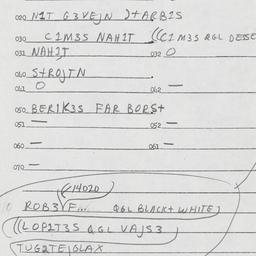 020 N1T G3VEJN )+ARB2S
030 C1M3S NAH1T ((C1M3S RGL DESSE
031 NAH2T 032 O
040 S+ROJTN .
041 O 042 —
050 BER1K3S FAR BORS+
051 — 052 —
060 — 061 —
070 —
(14020
ROB3YF... Q6L BLACK+ WHITE)
((LOP2T3S Q6L VAJS3
TUG2TEJGLAX